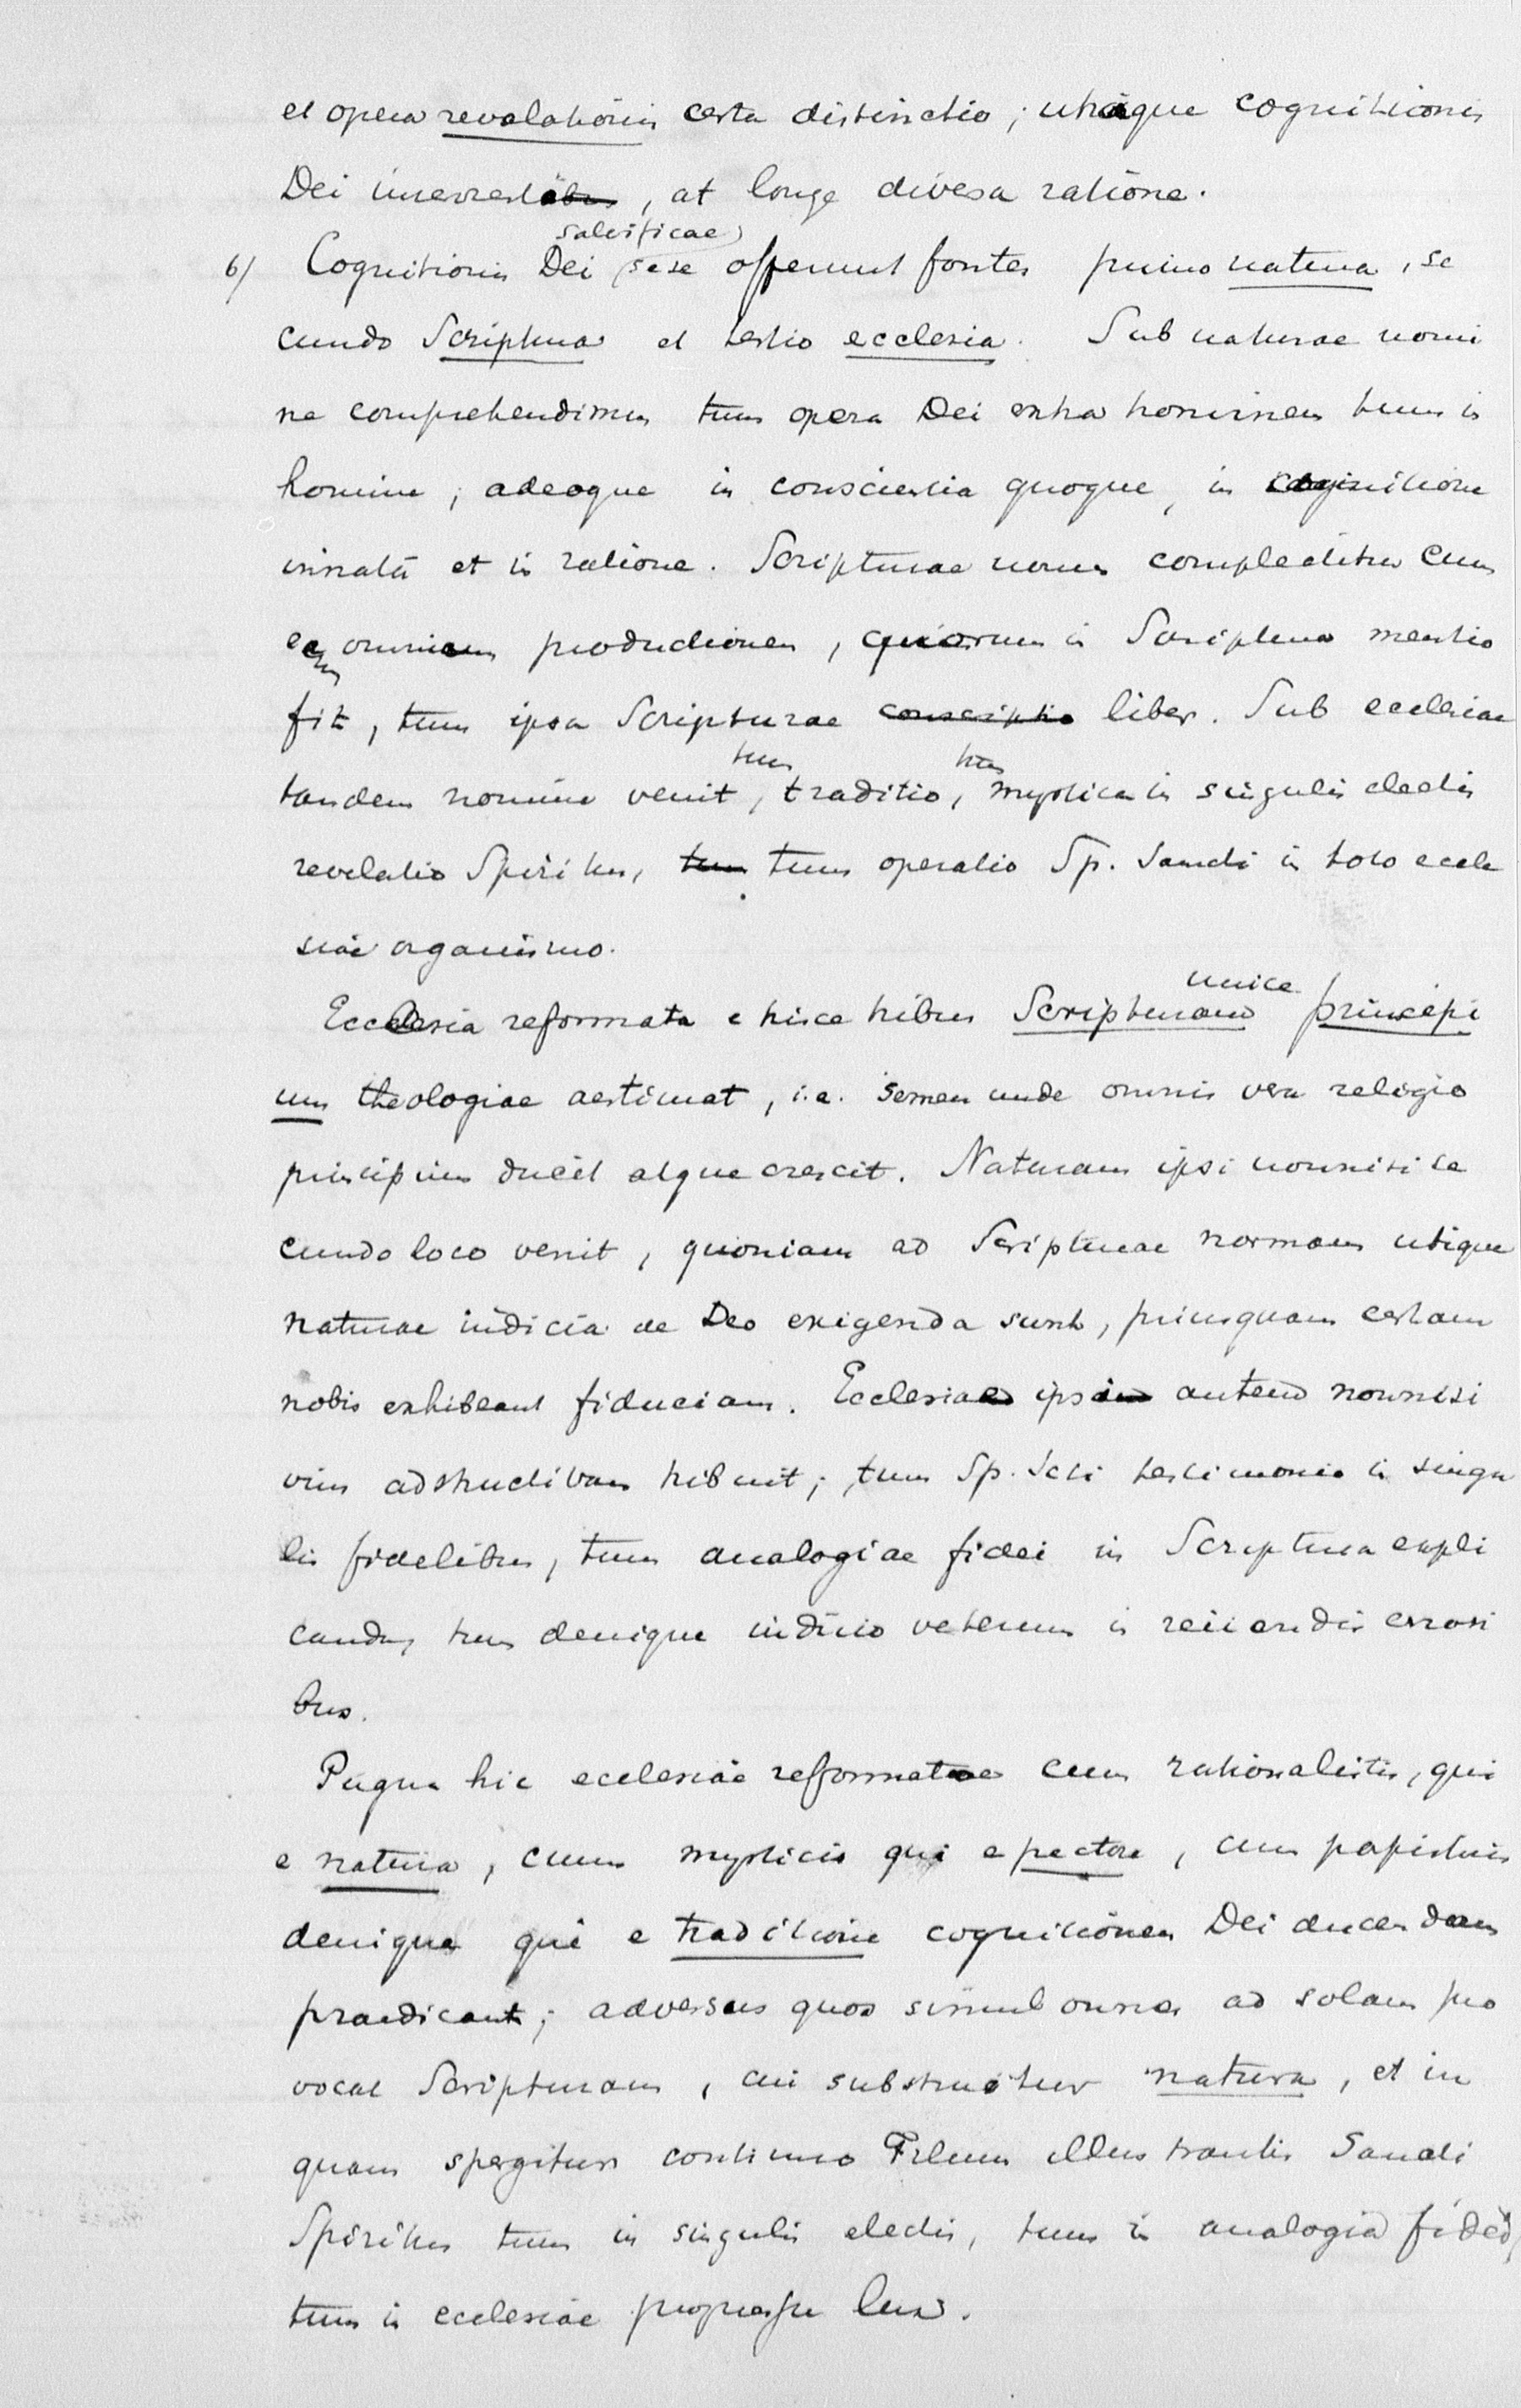 et opera revelationis certa distinctio; utráque cognitionis
Dei , at longe diversa ratione.
salvificae
6/ Cognitionis Dei sese offerunt fontes primo natura, se
cundo Scriptura et tertio ecclesia. Sub naturae nomi
ne comprehendimus tum opera Dei extra hominem tum in
homine; adeoque in conscientia quoque, in cognitione
innatâ et in ratione. Scripturae nomen complectitur cum
eam omnem productionem, quorum in Scriptura mentio
fit, tum ipsa Scripturae conscriptio liber. Sub ecclesiae
tum tum
tandem nomine venit, traditio, mystica in singulis electis
revelatio Spiritus, tum tum operatio Sp. Sancti in toto eccle
siae organismo.
unice
Ecclesia reformata e hisce tribus Scripturam principi
um theologiae aestimat, i.e. semen unde omnis vera religio
principium ducit atque crescit. Naturam ipsi nonnisi se
cundo loco venit, quoniam ad Scripturae normam utique
naturae iudicia de Deo exigenda sunt, priusquam certam
nobis exhibeant fiduciam. Ecclesiae autem nonnisi
vim adstructivam tribuit; tum Sp. Scti testimonio in singu
lis fidelibus, tum analogiae fidei in Scriptura expli
canda, tum denique iudicio veterum in reiiciendis errori
bus.
Pugna hic ecclesiae reformatae cum rationalistis, qui
e natura, cum mysticis qui e pectore, cum papistis
denique qui e traditione cognitionem Dei ducendam
praedicant; adversus quos simul omnes ad solam pro
vocat Scripturam, cui substruitur natura, et in
quam spargitur continuo illustrantis Sancti
Spiritus tum in singulis electis, tum in analogia fidei,
tum in ecclesiae progressu lux.